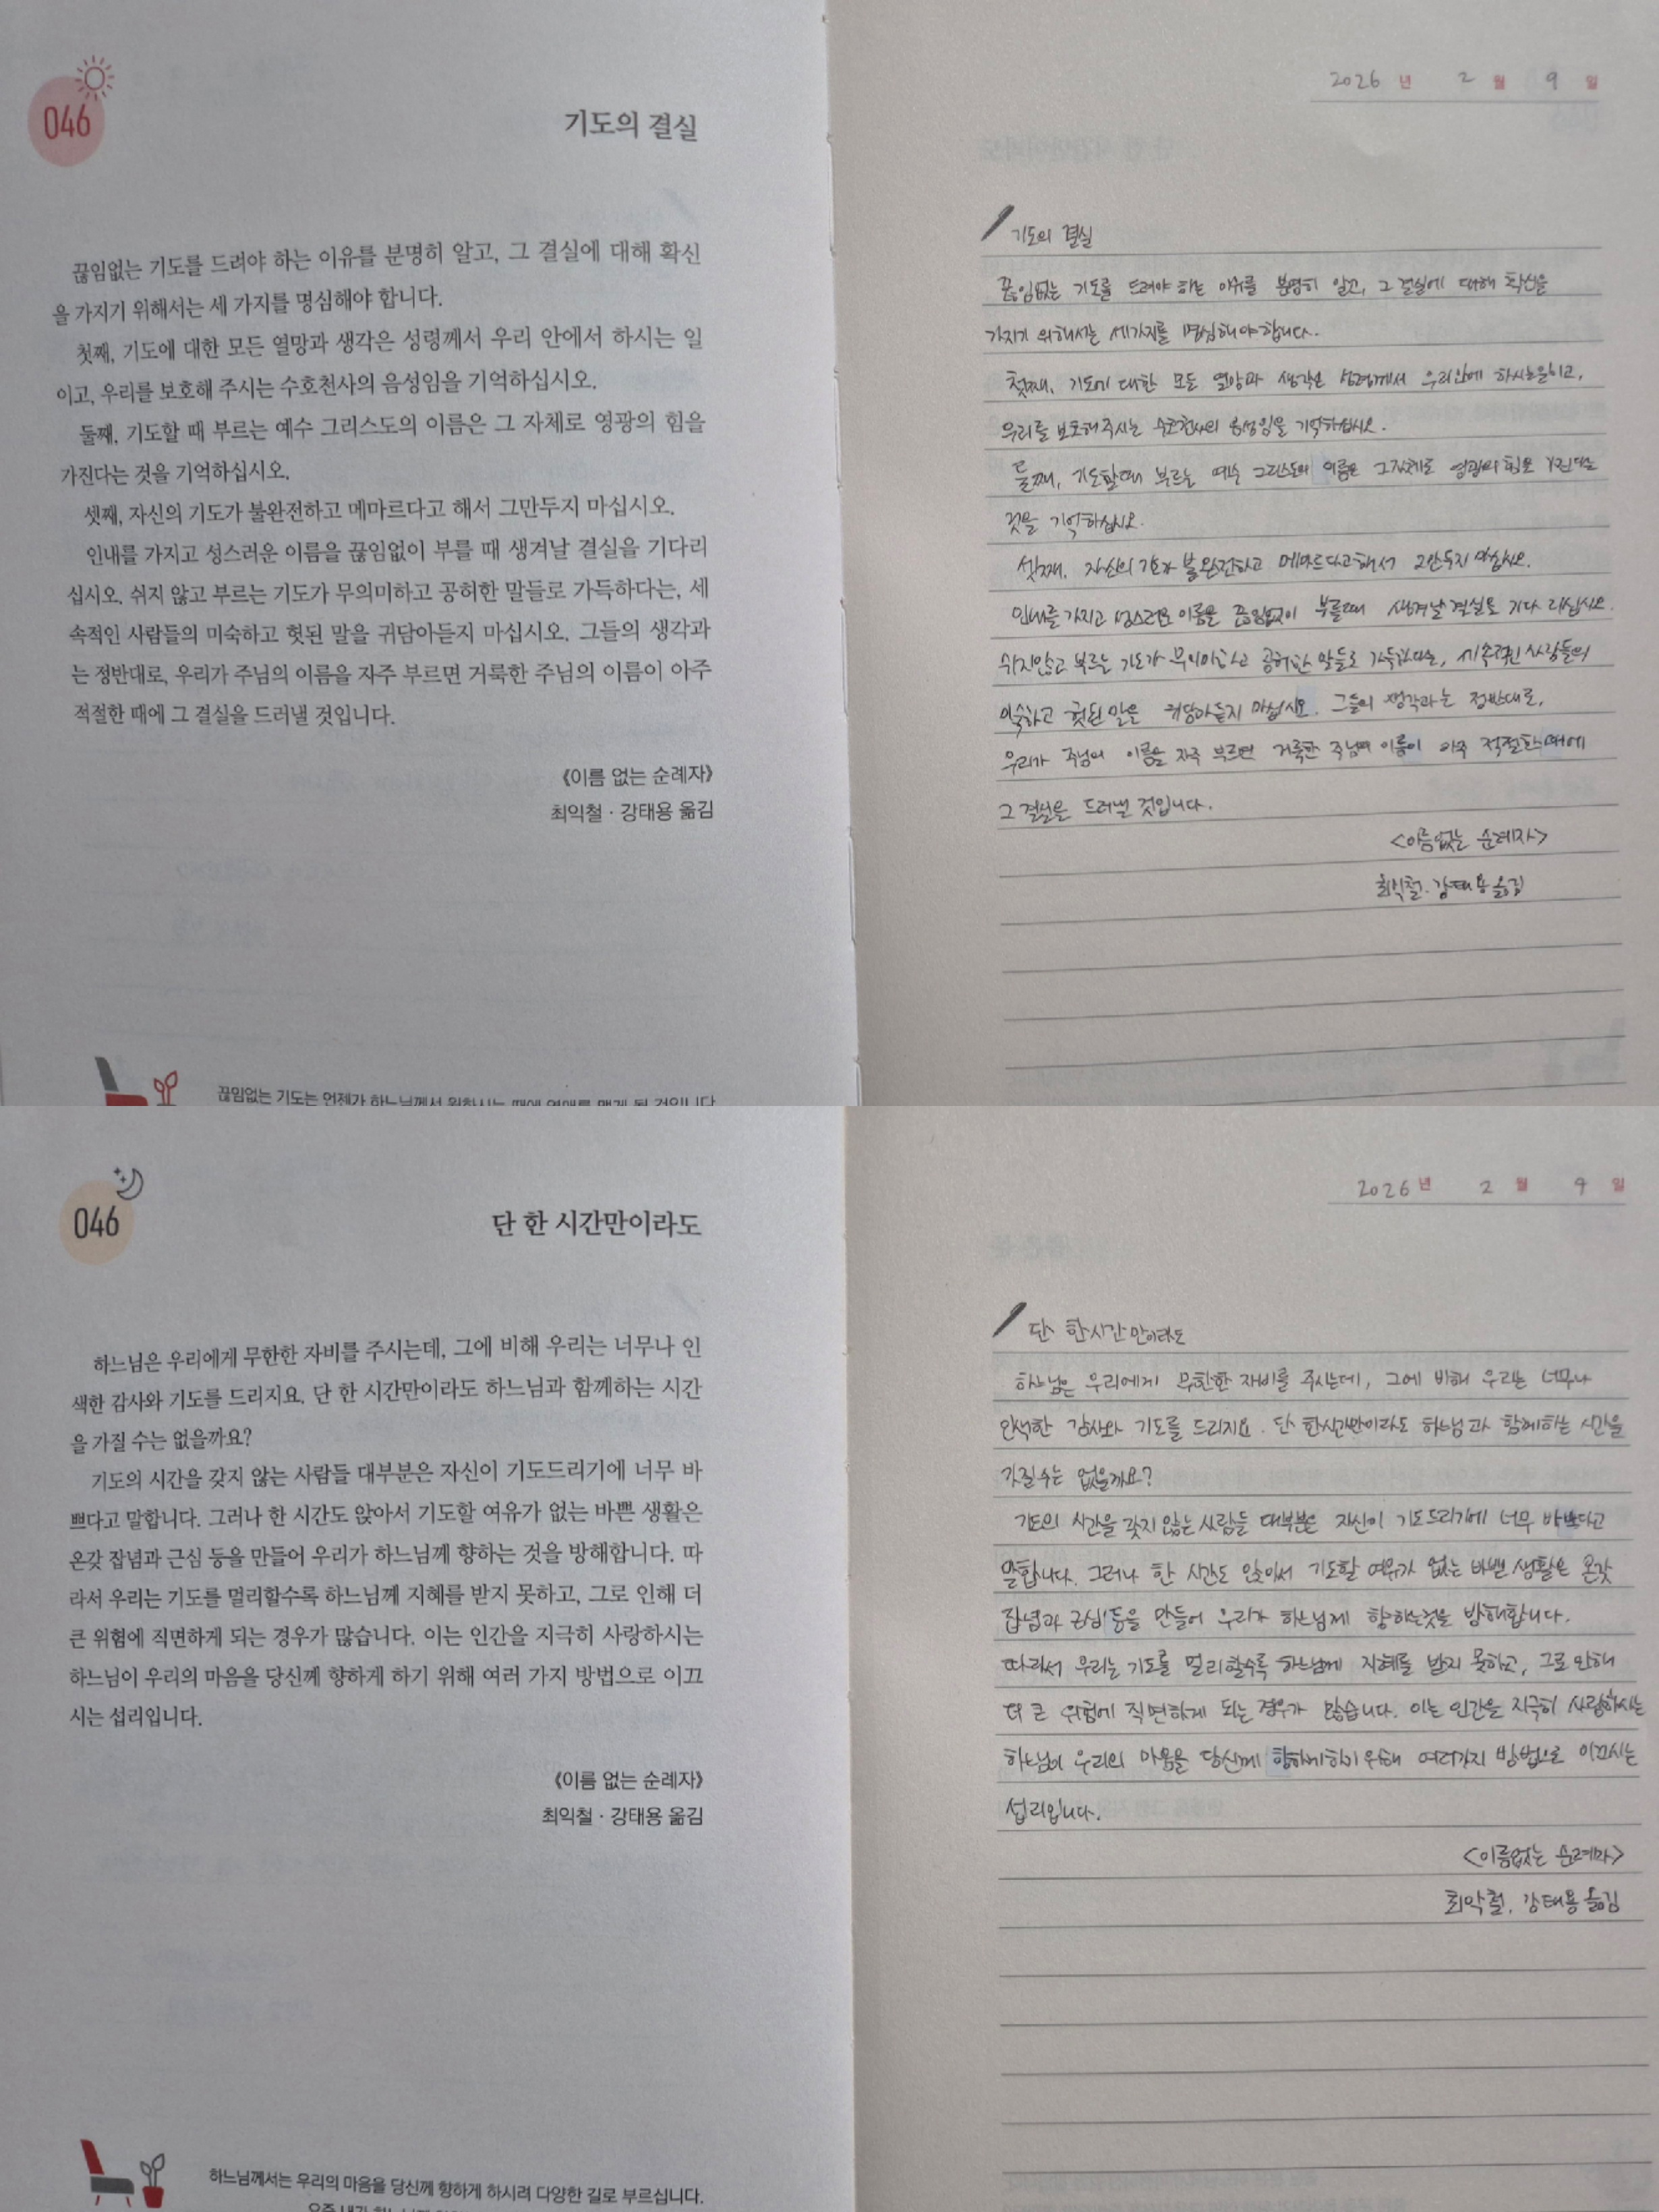 046
기도의 결실
끊임없는 기도를 드려야 하는 이유를 분명히 알고, 그 결실에 대해 확신
을 가지기 위해서는 세 가지를 명심해야 합니다.
첫째, 기도에 대한 모든 열망과 생각은 성령께서 우리 안에서 하시는 일
이고, 우리를 보호해 주시는 수호천사의 음성임을 기억하십시오.
둘째, 기도할 때 부르는 예수 그리스도의 이름은 그 자체로 영광의 힘을
가진다는 것을 기억하십시오.
셋째, 자신의 기도가 불완전하고 메마르다고 해서 그만두지 마십시오.
인내를 가지고 성스러운 이름을 끊임없이 부를 때 생겨날 결실을 기다리
십시오. 쉬지 않고 부르는 기도가 무의미하고 공허한 말들로 가득하다는, 세
속적인 사람들의 미숙하고 헛된 말을 귀담아듣지 마십시오. 그들의 생각과
는 정반대로, 우리가 주님의 이름을 자주 부르면 거룩한 주님의 이름이 아주
적절한 때에 그 결실을 드러낼 것입니다.
《이름 없는 순례자》
최익철 · 강태용 옮김
끊임없는 기도는 언젠가 하느님께서 원하시는 때에 열매를 맺게 될 것입니다
2026 년 2 월 9 일
기도의 결실
끊임없는 기도를 드려야 하는 이유를 분명히 알고, 그 결실에 대해 확신을
가지기 위해서는 세가지를 명심해야합니다.
첫째, 기도에 대한 모든 열망과 생각은 성령께서 우리안에 하시는일이고,
우리를 보호해주시는 수호천사의 음성임을 기억하십시오.
둘째, 기도할때 부르는 예수 그리스도의 이름은 그자체로 영광의 힘을 가진다는
것을 기억하십시오.
셋째, 자신의 기도가 불완전하고 메마르다고해서 그만두지 마십시오.
인내를 가지고 성스러운 이름을 끊임없이 부를때 생겨날 결실을 기다리십시오.
쉬지않고 부르는 기도가 무의미하고 공허한 말들로 가득하다는, 세속적인 사람들의
미숙하고 헛된 말을 귀담아듣지 마십시오. 그들의 생각과는 정반대로,
우리가 주님의 이름을 자주 부르면 거룩한 주님의 이름이 아주 적절한 때에
그 결실을 드러낼 것입니다.
<이름없는 순례자>
최익철. 강태용 옮김
046
단 한 시간만이라도
하느님은 우리에게 무한한 자비를 주시는데, 그에 비해 우리는 너무나 인
색한 감사와 기도를 드리지요. 단 한 시간만이라도 하느님과 함께하는 시간
을 가질 수는 없을까요?
기도의 시간을 갖지 않는 사람들 대부분은 자신이 기도드리기에 너무 바
쁘다고 말합니다. 그러나 한 시간도 앉아서 기도할 여유가 없는 바쁜 생활은
온갖 잡념과 근심 등을 만들어 우리가 하느님께 향하는 것을 방해합니다. 따
라서 우리는 기도를 멀리할수록 하느님께 지혜를 받지 못하고, 그로 인해 더
큰 위험에 직면하게 되는 경우가 많습니다. 이는 인간을 지극히 사랑하시는
하느님이 우리의 마음을 당신께 향하게 하기 위해 여러 가지 방법으로 이끄
시는 섭리입니다.
《이름 없는 순례자》
최익철 · 강태용 옮김
하느님께서는 우리의 마음을 당신께 향하게 하시려 다양한 길로 부르십니다.
2026 년 2 월 9 일
단 한시간만이라도
하느님은 우리에게 무한한 자비를 주시는데, 그에 비해 우리는 너무나
인색한 감사와 기도를 드리지요. 단 한시간만이라도 하느님과 함께하는 시간을
가질수는 없을까요?
기도의 시간을 갖지 않는 사람들 대부분은 자신이 기도드리기에 너무 바쁘다고
말합니다. 그러나 한 시간도 앉아서 기도할 여유가 없는 바쁜 생활은 온갖
잡념과 근심 등을 만들어 우리가 하느님께 향하는것을 방해합니다.
따라서 우리는 기도를 멀리할수록 하느님께 지혜를 받지 못하고, 그로 인해
더 큰 위험에 직면하게 되는 경우가 많습니다. 이는 인간을 지극히 사랑하시는
하느님이 우리의 마음을 당신께 향하게하기 위해 여러가지 방법으로 이끄시는
섭리입니다.
<이름없는 순례자>
최익철. 강태용 옮김